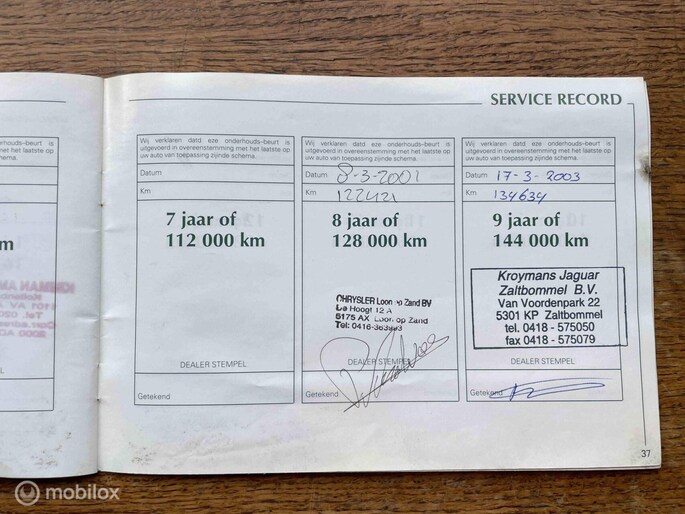 SERVICE RECORD
houds-beurt is
et het laatste op
chema.
m
Wij verklaren datd eze onderhouds-beurt is
uitgevoerd in overeenstemming met het laatste op
uw auto van toepassing zijnde schema.
Datum
Km
7 jaar of
112 000 km
DEALER STEMPEL
Getekend
Wij verklaren datd eze onderhouds-beurt is
uitgevoerd in overeenstemming met het laatste op
uw auto van toepassing zijnde schema.
Datum 8-3-2002
Km 122421
8 jaar of
128 000 km
CHRYSLER Loon op Zand BV
De Hoogt 12 A
5175 AX Loon op Zand
Tel: 0416-363
DEALER STEMPEL
Getekend
Wij verklaren datd eze onderhouds-beurt is
uitgevoerd in overeenstemming met het laatste op
uw auto van toepassing zijnde schema.
Datum 17-3-2003
Km 134634
9 jaar of
144 000 km
Kroymans Jaguar
Zaltbommel B.V.
Van Voordenpark 22
5301 KP Zaltbommel
tel. 0418 - 575050
fax 0418 - 575079
DEALER STEMPEL
Getekend
37
mobilox